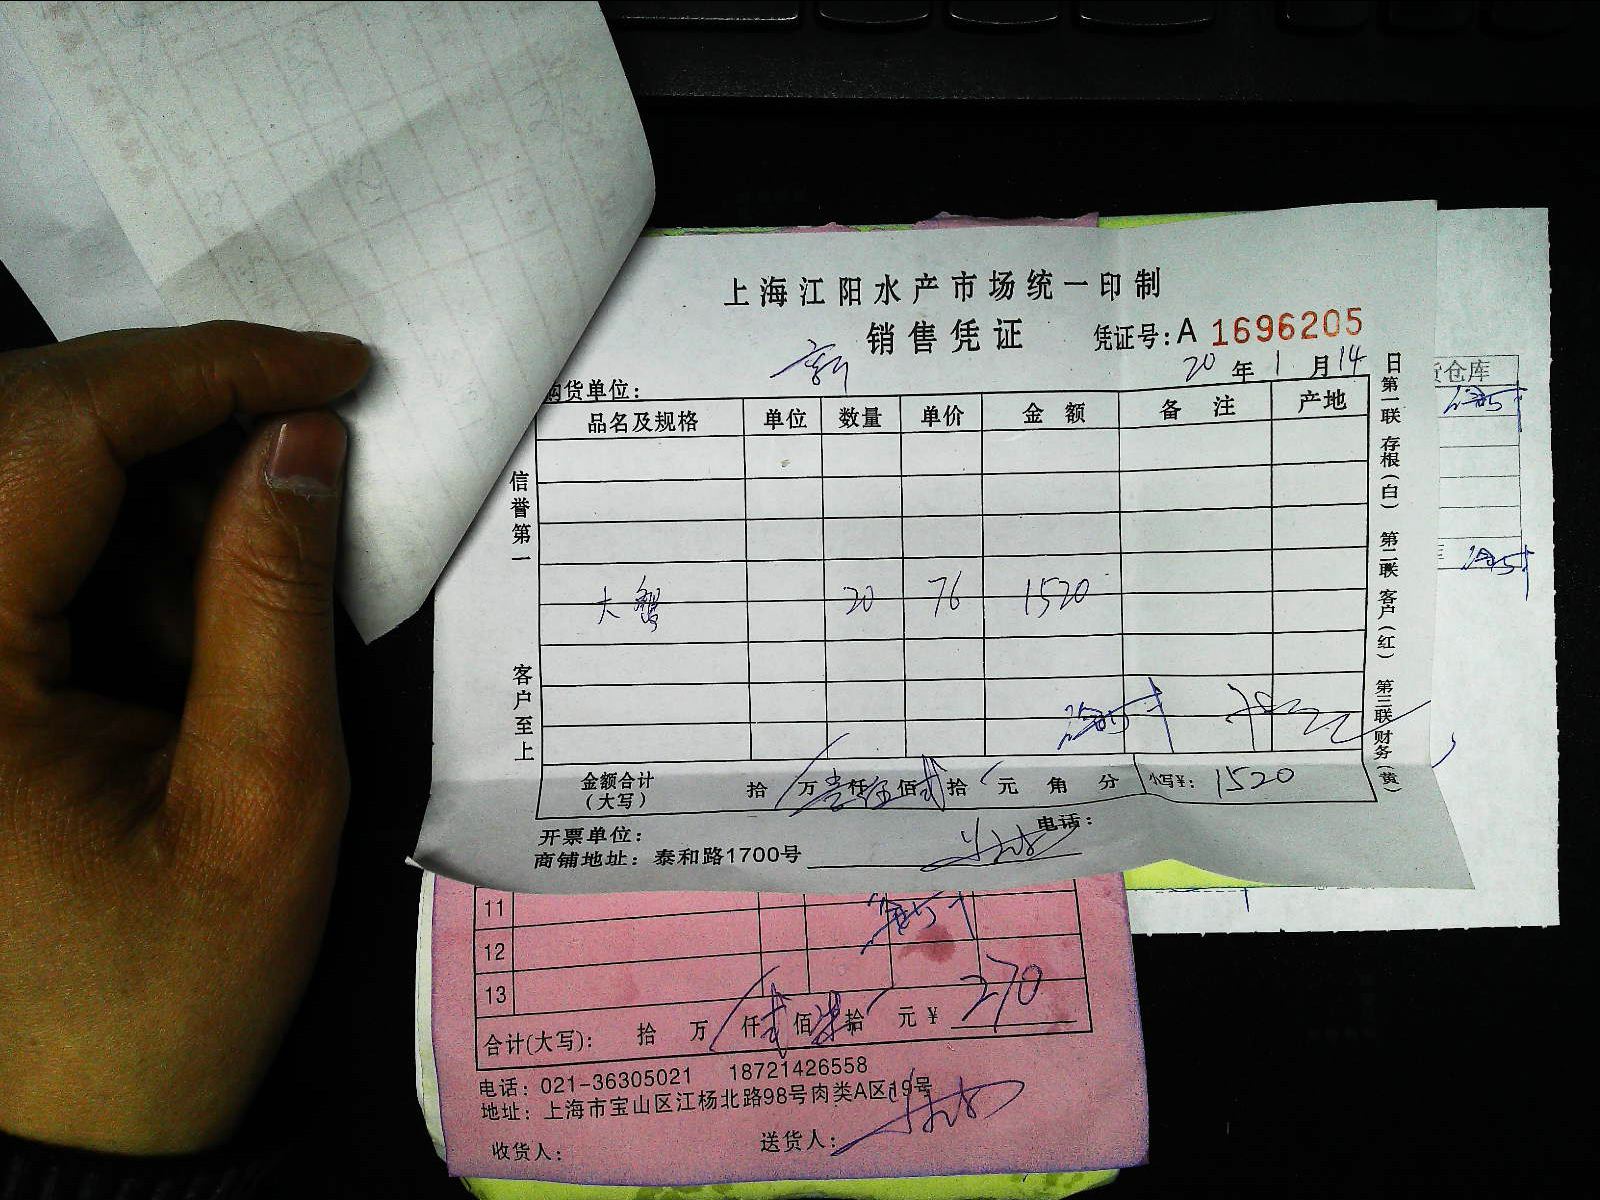 上海江阳水产市场统一印制
销售凭证 凭证号:A 1696205
20 年 1 月 14 日
购货单位:
品名及规格 单位 数量 单价 金额 备注 产地
大蟹 20 76 1520
金额合计(大写) 拾 万 壹 仟 伍 佰 贰 拾 元 角 分 小写¥: 1520
开票单位: 电话:
商铺地址: 泰和路1700号
信誉第一 客户至上
第一联 存根(白) 第二联 客户(红) 第三联 财务(黄)
仓库
11
12
13
合计(大写): 拾 万 仟 贰 佰 柒 拾 元¥ 270
电话: 021-36305021 18721426558
地址: 上海市宝山区江杨北路98号肉类A区19号
收货人: 送货人: